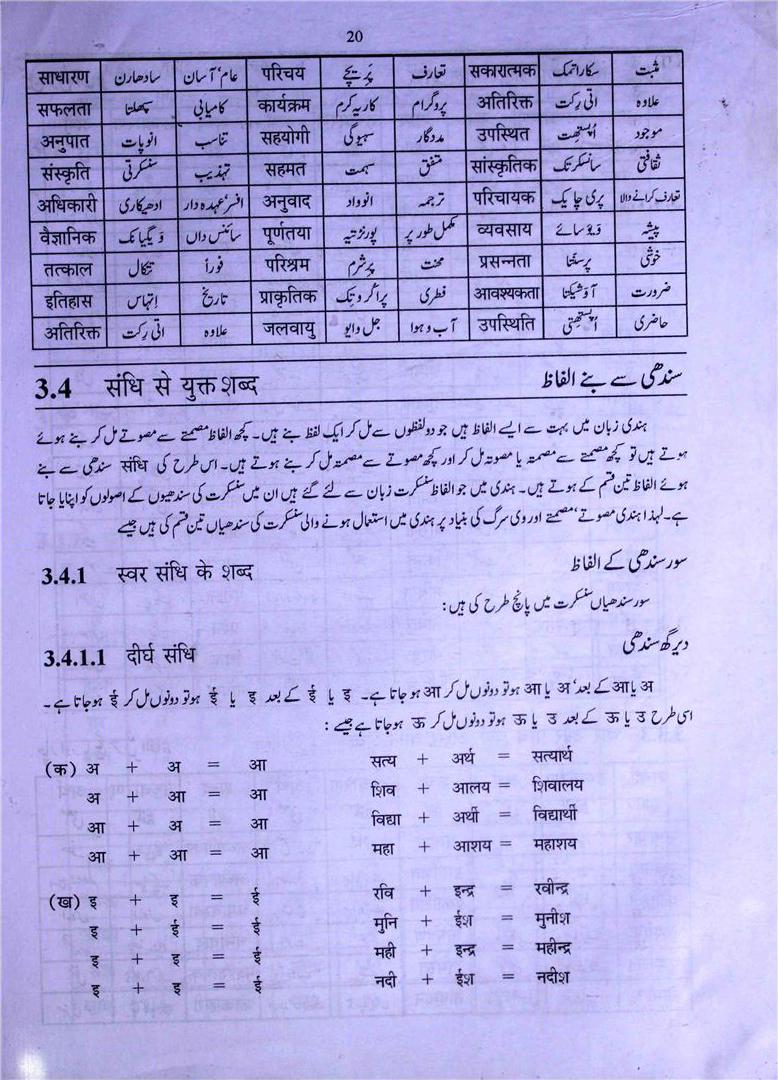 20
साधारण سادھارن عام، آسان परिचय پَرِیچے تعارف सकारात्मक سکاراتمک مثبت
सफलता سپھلتا کامیابی कार्यक्रम کاریہ کرم پروگرام अतिरिक्त اتی رِکت علاوہ
अनुपात انوپات تناسب सहयोगी سہیوگی مددگار उपस्थित اُپستھِت موجود
संस्कृति سنسکرتی تہذیب सहमत سہمت متفق सांस्कृतिक سانسکرتک ثقافتی
अधिकारी ادھیکاری افسر، عہدہ دار अनुवाद انوواد ترجمہ परिचायक پری چایک تعارف کرانے والا
वैज्ञानिक وَیگیانک سائنس داں पूर्णतया پورنڑتیہ مکمل طور پر व्यवसाय وَیوسائے پیشہ
तत्काल تتکال فوراً परिश्रम پرِشرم محنت प्रसन्नता پرسنّتا خوشی
इतिहास اِتِہاس تاریخ प्राकृतिक پراکروتِک فطری आवश्यकता آوَشیکتا ضرورت
अतिरिक्त اتی رِکت علاوہ जलवायु جل وایو آب و ہوا उपस्थिति اُپستھِتی حاضری
3.4 संधि से युक्त शब्द سندھی سے بنے الفاظ
ہندی زبان میں بہت سے ایسے الفاظ ہیں جو دو لفظوں سے مل کر ایک لفظ بنے ہیں۔ کچھ الفاظ مصمتے سے مصوتے مل کر بنے ہوئے
ہوتے ہیں تو کچھ مصمتے سے مصمتہ یا مصوتہ مل کر اور کچھ مصوتے سے مصمتہ مل کر بنے ہوتے ہیں۔ اس طرح کی संधि سندھی سے بنے
ہوئے الفاظ تین قسم کے ہوتے ہیں۔ ہندی میں جو الفاظ سنسکرت زبان سے لئے گئے ہیں ان میں سنسکرت کی سندھیوں کے اصولوں کو اپنایا جاتا
ہے۔ لہٰذا ہندی مصوتے، مصمتے اور وی سرگ کی بنیاد پر ہندی میں استعمال ہونے والی سنسکرت کی سندھیاں تین قسم کی ہیں جیسے
3.4.1 स्वर संधि के शब्द سور سندھی کے الفاظ
سور سندھیاں سنسکرت میں پانچ طرح کی ہیں:
3.4.1.1 दीर्घ संधि دیرگھ سندھی
अ یا आ کے بعد، अ یا आ ہو تو دونوں مل کر आ ہو جاتا ہے۔ इ یا ई کے بعد इ یا ई ہو تو دونوں مل کر ई ہو جاتا ہے۔
اسی طرح उ یا ऊ کے بعد उ یا ऊ ہو تو دونوں مل کر ऊ ہو جاتا ہے جیسے :
(क) अ + अ = आ सत्य + अर्थ = सत्यार्थ
अ + आ = आ शिव + आलय = शिवालय
आ + अ = आ विद्या + अर्थी = विद्यार्थी
आ + आ = आ महा + आशय = महाशय
(ख) इ + इ = ई रवि + इन्द्र = रवीन्द्र
इ + ई = ई मुनि + ईश = मुनीश
इ + इ = ई मही + इन्द्र = महीन्द्र
इ + इ = ई नदी + ईश = नदीश